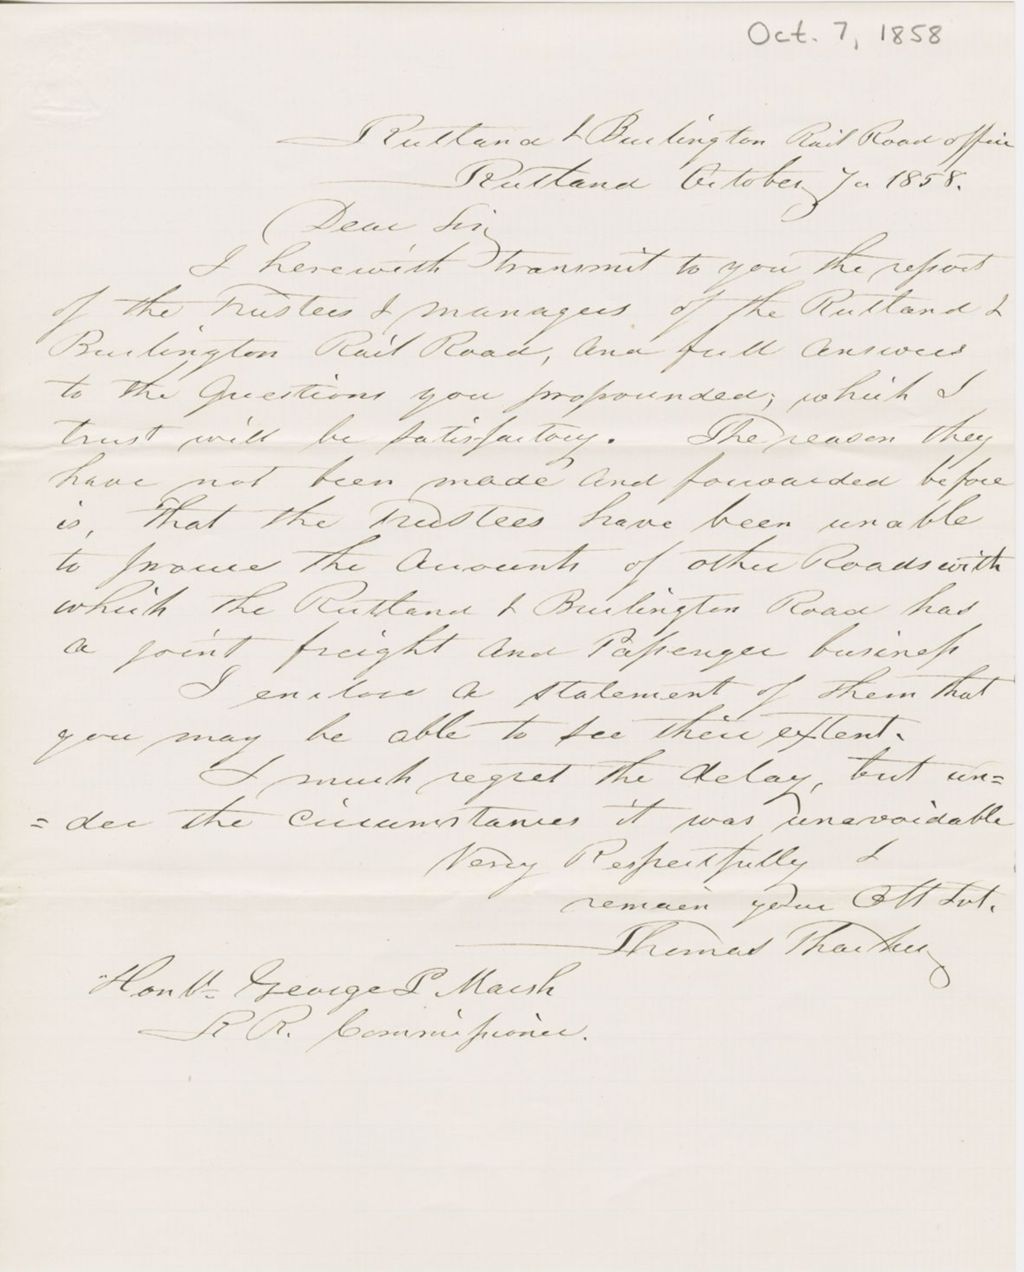 Oct. 7, 1858
Rutland & Burlington Rail Road office
Rutland October 7th 1858.
Dear Sir,
I herewith transmit to you the report
of the Trustees & managers of the Rutland &
Burlington Rail Road, and full answers
to the Questions you propounded; which I
trust will be satisfactory. The reason they
have not been made and forwarded before
is, That the Trustees have been unable
to procure the Accounts of other Roads with
which the Rutland & Burlington Road has
a joint freight and Passenger business
I enclose a statement of them that
you may be able to see their extent.
I much regret the delay, but un=
=der the circumstances it was unavoidable
Very Respectfully I
remain your Obt Svt.
Thomas Thatcher
Honbl George P Marsh
R R. Commissioner.